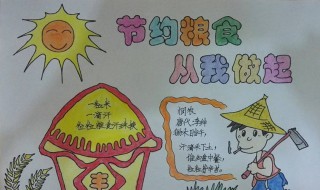 节约粮食
从我做起
一粒米
一滴汗
粒粒粮食汗珠换
丰
悯农
唐代:李绅
锄禾日当午,
汗滴禾下土,
谁知盘中餐,
粒粒皆辛苦。